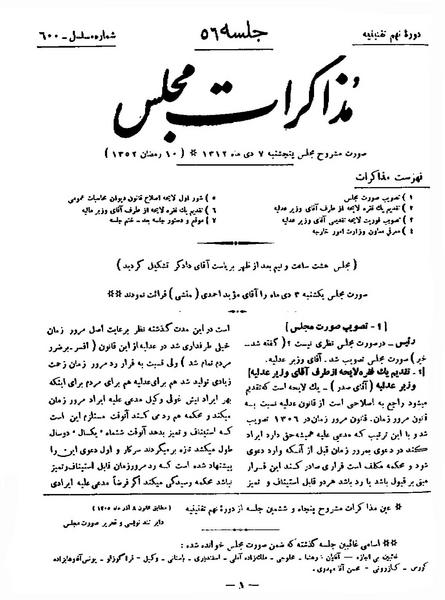 دورهٔ نهم تقنینیه
جلسه ۵۶
شماره مسلسل - ۶۰۰
مذاکرات مجلس
صورت مشروح مجلس پنجشنبه ۷ دی ماه ۱۳۱۲ * ( ۱۰ رمضان ۱۳۵۲ )
فهرست مذاکرات
۱ ) تصویب صورت مجلس
۲ ) تقدیم یك فقره لایحه از طرف آقای وزیر عدلیه
۳ ) تصویب فوریت لایحه تقدیمی آقای وزیر عدلیه
۴ ) معرفی معاون وزارت امور خارجه
۵ ) شور اول لایحه اصلاح قانون دیوان محاسبات عمومی
۶ ) تقدیم یك فقره لایحه از طرف آقای وزیر مالیه
۷ ) موقع و دستور جلسه بعد - ختم جلسه
( مجلس هشت ساعت و نیم بعد از ظهر بریاست آقای دادگر تشکیل گردید )
صورت مجلس یکشنبه ۳ دی ماه را آقای مؤید احمدی ( منشی ) قرائت نمودند **
[ ۱ - تصویب صورت مجلس ]
رئیس - در صورت مجلس نظری نیست ؟ ( گفته شد -
خیر ) صورت مجلس تصویب شد . آقای وزیر عدلیه .
[ ۲- تقدیم یك فقره لایحه از طرف آقای وزیر عدلیه ]
وزیر عدلیه ( آقای صدر ) - یك لایحه است که تقدیم
میشود راجع به اصلاحی است از قانون عدلیه نسبت به
قانون مرور زمان . قانون مرور زمان در ۱۳۰۶ تصویب
شد و با این ترتیب که مدعی علیه همیشه حق دارد ایراد
کند در دعوی بمرور زمان قبل از آنکه وارد دعوی
شود و محکمه مکلف است قراری صادر کند این قرار
مبنی بر قبول باشد یا رد باشد هر دو قابل استیناف و تمیز
است در این مدت گذشته نظر برعایت اصل مرور زمان
خیلی طرفداری شد در عدلیه از این قانون ( افسر - بر ضرر
مردم تمام شد ) ولی نسبت به قرار رد مرور زمان زحمت
زیادی تولید شد هم برای عدلیه هم برای مردم برای اینکه
بهر ایراد نیش غولی وکیل مدعی علیه ایراد مرور زمان
میکند و محکمه هم رد می کند آنوقت مستلزم این است
که استیناف و تمیز بدهد آنوقت ششماه « یکسال » دو سال
طول میکشد تازه برمیگردند سر کار و اول دعوی این را
پیشنهاد شده است که رد مرور زمان قابل استیناف و تمیز
نباشد محکمه رسیدگی میکند اگر فرضاً مدعی علیه ایرادی
* عین مذاکرات مشروح پنجاه و ششمین جلسه از دورهٔ نهم تقنینیه
( مطابق قانون ۸ آذر ماه ۱۳۰۵ )
دایره تند نویسی و تحریر صورت مجلس
** اسامی غائبین جلسه گذشته که ضمن صورت مجلس خوانده شده :
- ۱ -